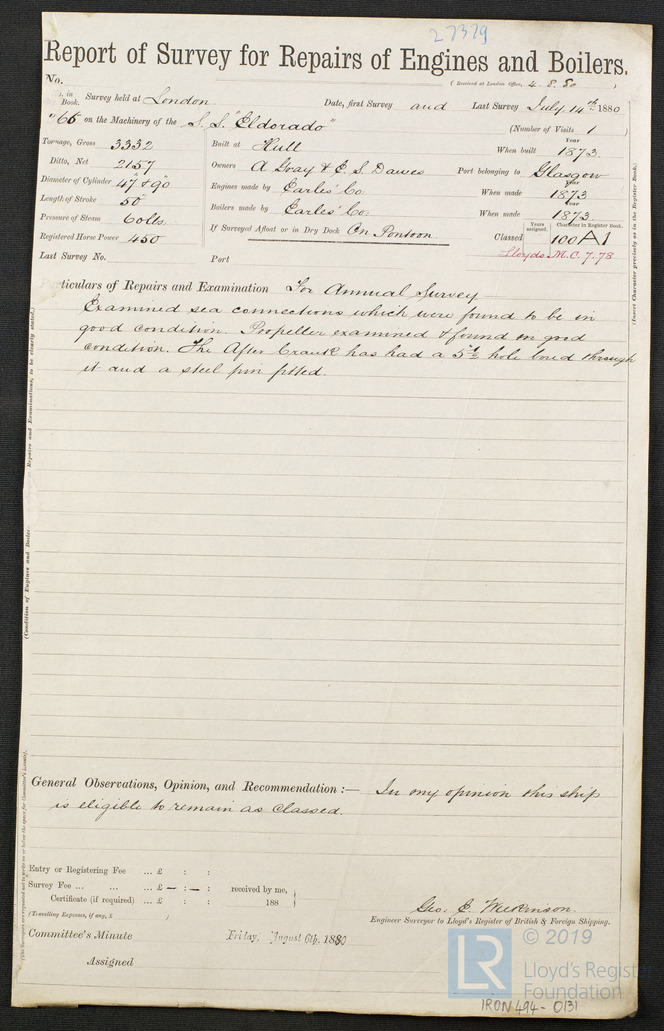 27379
Report of Survey for Repairs of Engines and Boilers.
No.
(Received at London Office, 4.8.80)
in Book. Survey held at London Date, first Survey and Last Survey July 14th 1880
"65 on the Machinery of the S.S. "Eldorado" (Number of Visits 1)
Tonnage, Gross 3332 Built at Hull When built Year 1873.
Ditto, Net 2157 Owners A Gray & E. S. Dawes Port belonging to Glasgow
Diameter of Cylinder 47" & 90 Engines made by Earles' Co. When made Year 1873
Length of Stroke 50" Boilers made by Earles' Co. When made Year 1873.
Pressure of Steam 60 lbs. If Surveyed Afloat or in Dry Dock On Pontoon Classed Years assigned. 100 Character in Register Book. A1
Registered Horse Power 450
Lloyds M.C. 7.78
Last Survey No. Port
(Insert Character precisely as in the Register Book.)
Particulars of Repairs and Examination For Annual Survey
Examined sea connections which were found to be in
good condition. Propeller examined & found in good
condition. The After Crank has had a hole bored through
it and a steel pin fitted.
Repairs and Examinations, to be clearly stated.)
(Condition of Engines and Boiler
General Observations, Opinion, and Recommendation :— In my opinion this ship
is eligible to remain as Classed.
Entry or Registering Fee ... £ : :
Survey Fee ... ... ... £ — : — : received by me,
Certificate (if required) ... £ : : 188
(Travelling Expenses, if any, £ )
Geo. E. Wilkinson.
Engineer Surveyor to Lloyd's Register of British & Foreign Shipping.
Committee's Minute Friday, August 6th, 1880
Assigned
LR © 2019
Lloyd's Register
Foundation
IRON494-0131